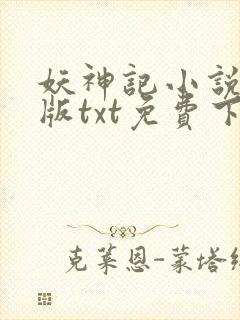 妖神記小說
版txt免費下
克萊恩-蒙塔